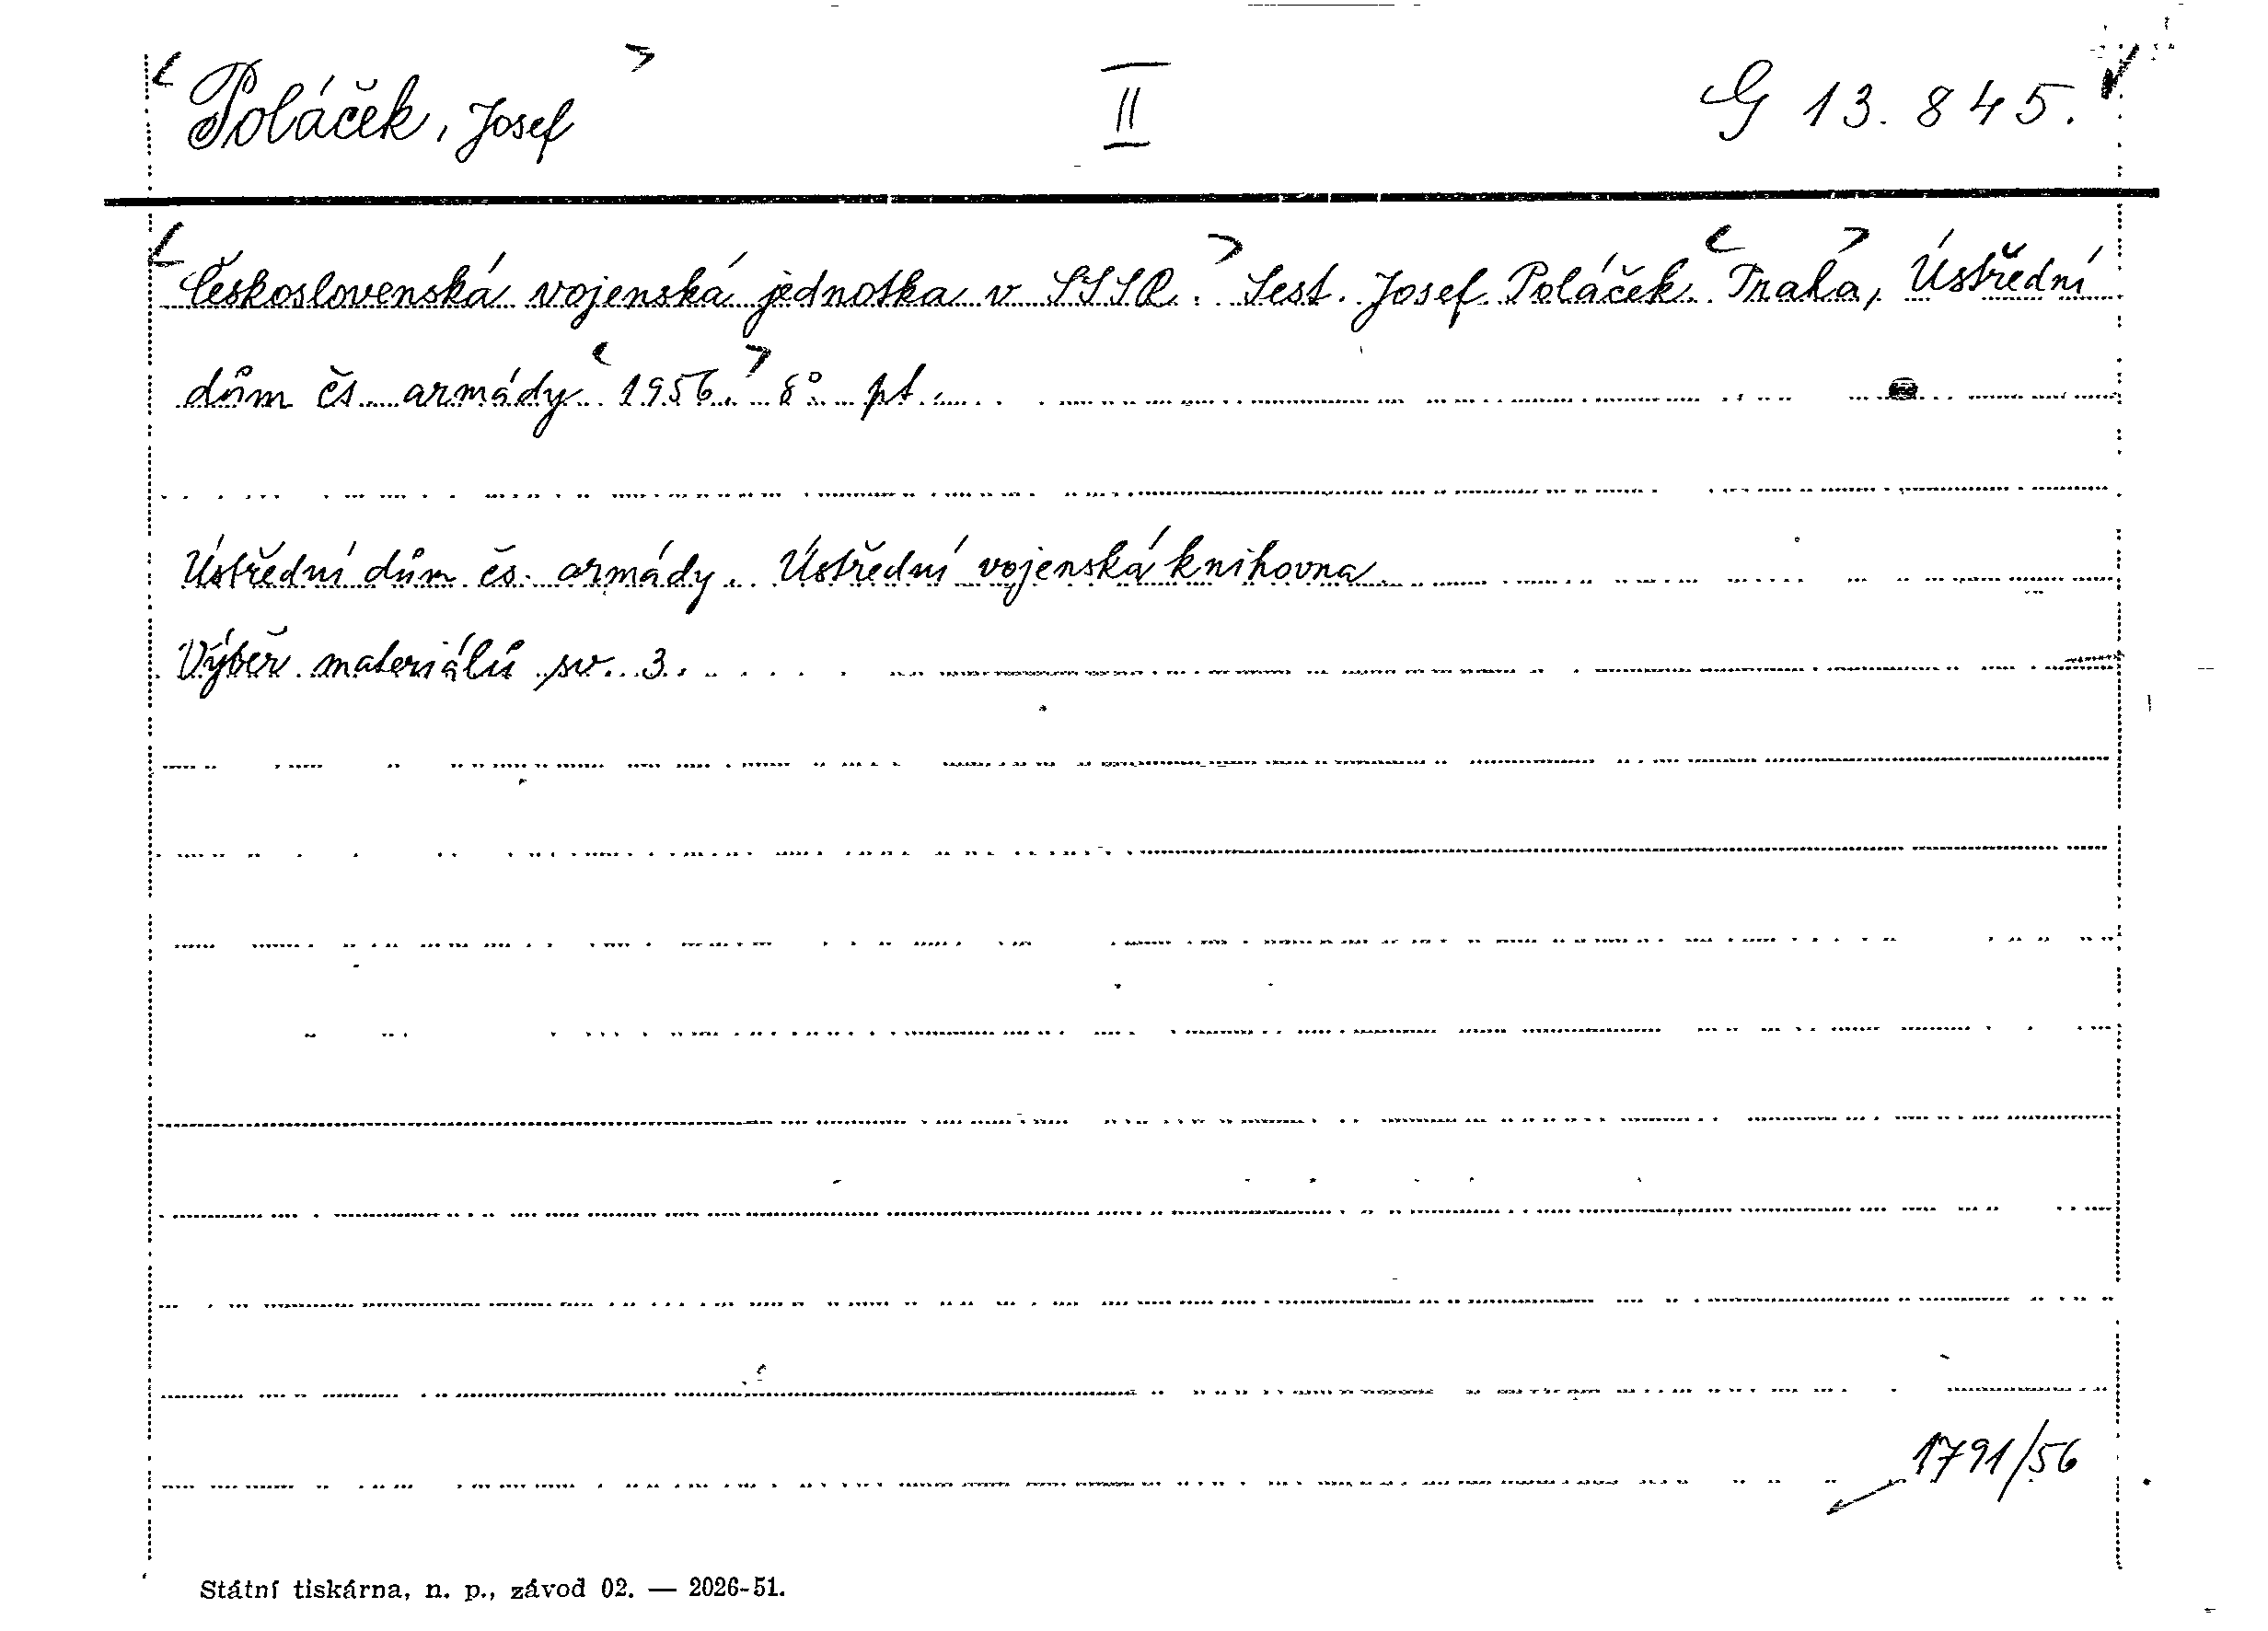 Poláček, Josef II G 13.845.
Československá vojenská jednotka v SSSR. Sest. Josef Poláček. Praha, Ústřední
dům čs. armády 1956. 8° pt.
Ústřední dům čs. armády. Ústřední vojenská knihovna.
Výběr materiálů sv. 3.
1791/56
Státní tiskárna, n. p., závod 02. — 2026-51.